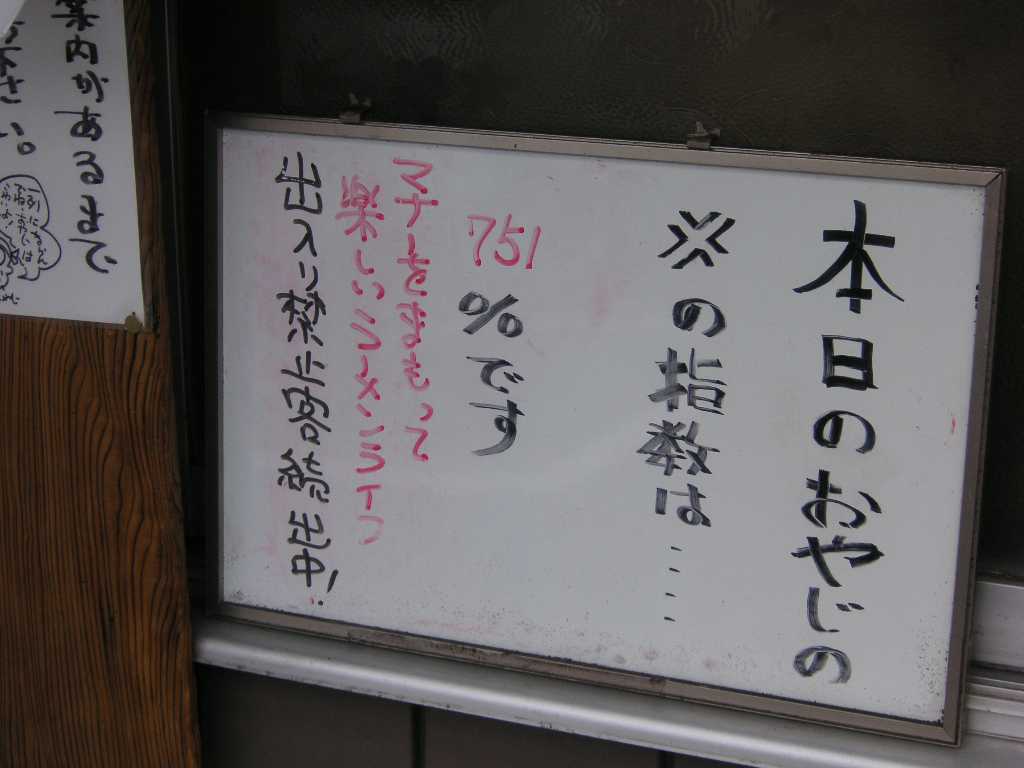 本日のおやじの
※の指数は‥‥
751
%です
マナーをまもって
楽しいラーメンライフ
出入り禁止者続出中!
案内があるまで
下さい。